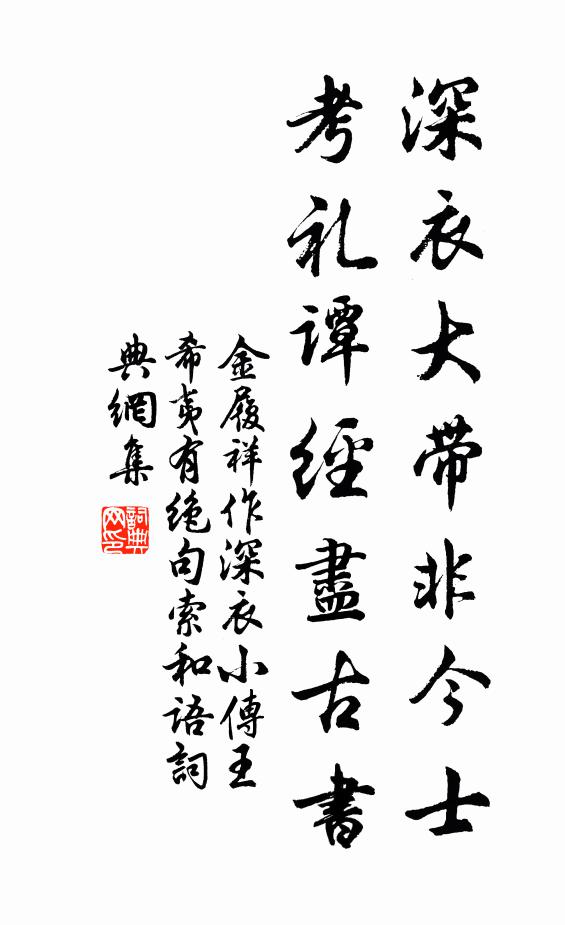 深衣大带非今士
考礼譚經盡古書
金履祥作深衣小傳王
希夷有绝句索和语詞
典網集
詞典网印